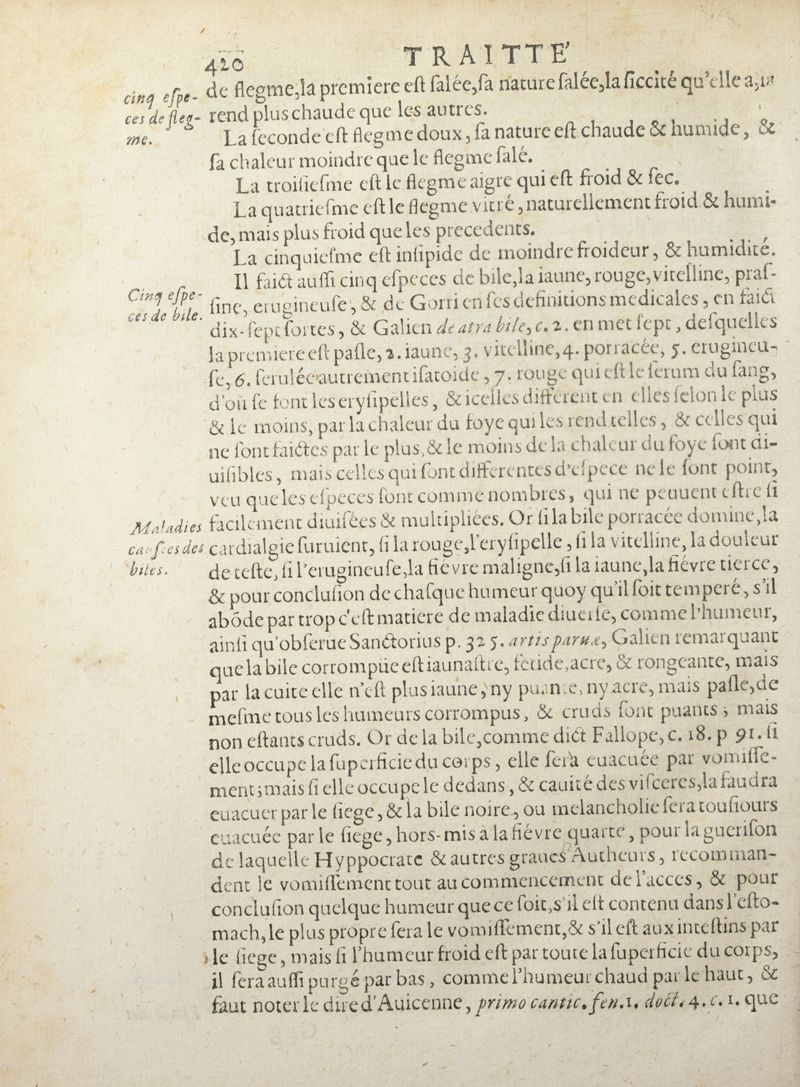 420 TRAITTE'
cinq espe-
ces de fleg-
me.
de flegme,la premiere est salée,sa nature salée,la siccité qu'elle a,la
rend plus chaude que les autres.
La seconde est flegme doux, sa nature est chaude & humide, &
sa chaleur moindre que le flegme salé.
La troisiesme est le flegme aigre qui est froid & sec.
La quatriesme est le flegme vitré, naturellement froid & humi-
de, mais plus froid que les precedents.
La cinquiesme est insipide de moindre froideur, & humidité.
Cinq espe-
ces de bile.
Il faict aussi cinq especes de bile,la iaune, rouge, vitelline, pras-
sine, erugineuse, & de Gorri en ses definitions medicales, en faict
dix-sept sortes, & Galien de atra bile, c. 2. en met sept, desquelles
la premiere est pasle, 2. iaune, 3. vitelline, 4. porracée, 5. erugineu-
se, 6. serulée autrement isatoide, 7. rouge qui est le serum du sang,
d'où se font les erysipelles, & icelles different en elles selon le plus
& le moins, par la chaleur du foye qui les rend telles, & celles qui
ne sont faictes par le plus, & le moins de la chaleur du foye sont di-
uisibles, mais celles qui sont differentes d'espece ne le sont point,
veu que les especes sont comme nombres, qui ne peuuent estre si
Maladies
causées des
biles.
facilement diuisées & multipliées. Or si la bile porracée domine,la
cardialgie suruient, si la rouge,l'erysipelle, si la vitelline, la douleur
de teste, si l'erugineuse,la fiévre maligne,si la iaune,la fiévre tierce,
& pour conclusion de chasque humeur quoy qu'il soit temperé, s'il
abõde par trop c'est matiere de maladie diuerse, comme l'humeur,
ainsi qu'obserue Sanctorius p. 325. artis paruæ, Galien remarquant
que la bile corrompüe est iaunastre, fetide, acre, & rongeante, mais
par la cuite elle n'est plus iaune, ny puante, ny acre, mais pasle, de
mesme tous les humeurs corrompus, & cruds sont puants; mais
non estants cruds. Or de la bile, comme dict Fallope, c. 18. p 91. si
elle occupe la superficie du corps, elle sera euacuée par vomisse-
ment; mais si elle occupe le dedans, & cauité des visceres,la faudra
euacuer par le siege, & la bile noire, ou melancholie sera tousiours
euacuée par le siege, hors-mis à la fiévre quarte, pour la guerison
de laquelle Hyppocrate & autres graues Autheurs, recomman-
dent le vomissement tout au commencement de l'acces, & pour
conclusion quelque humeur que ce soit, s'il est contenu dans l'esto-
mach, le plus propre sera le vomissement, & s'il est aux intestins par
le siege, mais si l'humeur froid est par toute la superficie du corps,
il sera aussi purgé par bas, comme l'humeur chaud par le haut, &
faut noter le dire d'Auicenne, primo cantic. fen. 1. doct. 4. c. 1. que